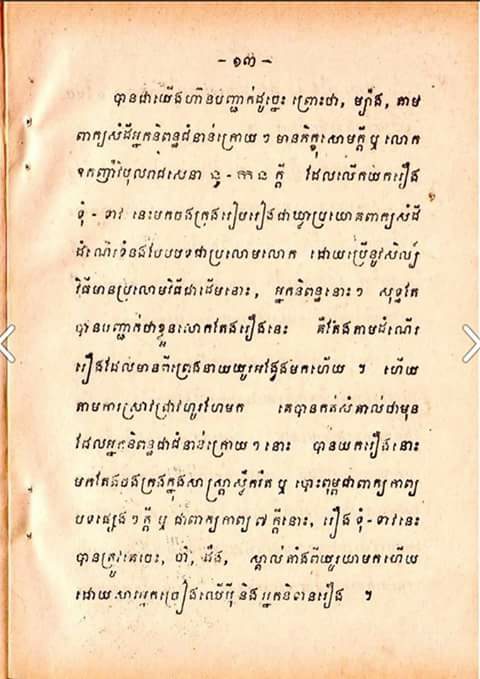 - ១៣ -
បានជាយើងហ៊ានបញ្ជាក់ដូច្នេះ ព្រោះថា, ម្យ៉ាង, តាម
ពាក្យសំដីអ្នកនិពន្ធជំនាន់ក្រោយ ៗ មានភិក្ខុសោមក្តី ឬ លោក
ឧកញ៉ាវិបុលរាជសេនា នូ - កន ក្តី ដែលលើកយករឿង
ទុំ - ទាវ នេះមកចងក្រងរៀបរៀងជាឃ្លាប្រយោគពាក្យសំដី
ដំណើរទំនងបែបបទជាប្រលោមលោក ដោយប្រើនូវសិល្ប៍
វិធីមានប្រលោមវិធីជាដើមនោះ, អ្នកនិពន្ធនោះ ៗ សុទ្ធតែ
បានបញ្ជាក់ថាខ្លួនលោកតែងរឿងនេះ គឺតែងតាមដំណើរ
រឿងដែលមានពីព្រេងនាយយូរអង្វែងមកហើយ ។ ហើយ
តាមការស្រាវជ្រាវហូរហែមក គេបានកត់សំគាល់ថាមុន
ដែលអ្នកនិពន្ធជាជំនាន់ក្រោយ ៗ នោះ បានយករឿងនោះ
មកតែងចងក្រងក្នុងសាស្ត្រាស្លឹករឹត ឬ បោះពុម្ពជាពាក្យកាព្យ
បទផ្សេង ៗ ក្តី ឬ ជាពាក្យកាព្យ ៧ ក្តីនោះ, រឿង ទុំ-ទាវនេះ
បានត្រូវគេចេះ, ចាំ, ដឹង, ស្គាល់តាំងពីយូរយាមកហើយ
ដោយសារអ្នកច្រៀងឈើប៉ី និង អ្នកនិទានរឿង ។